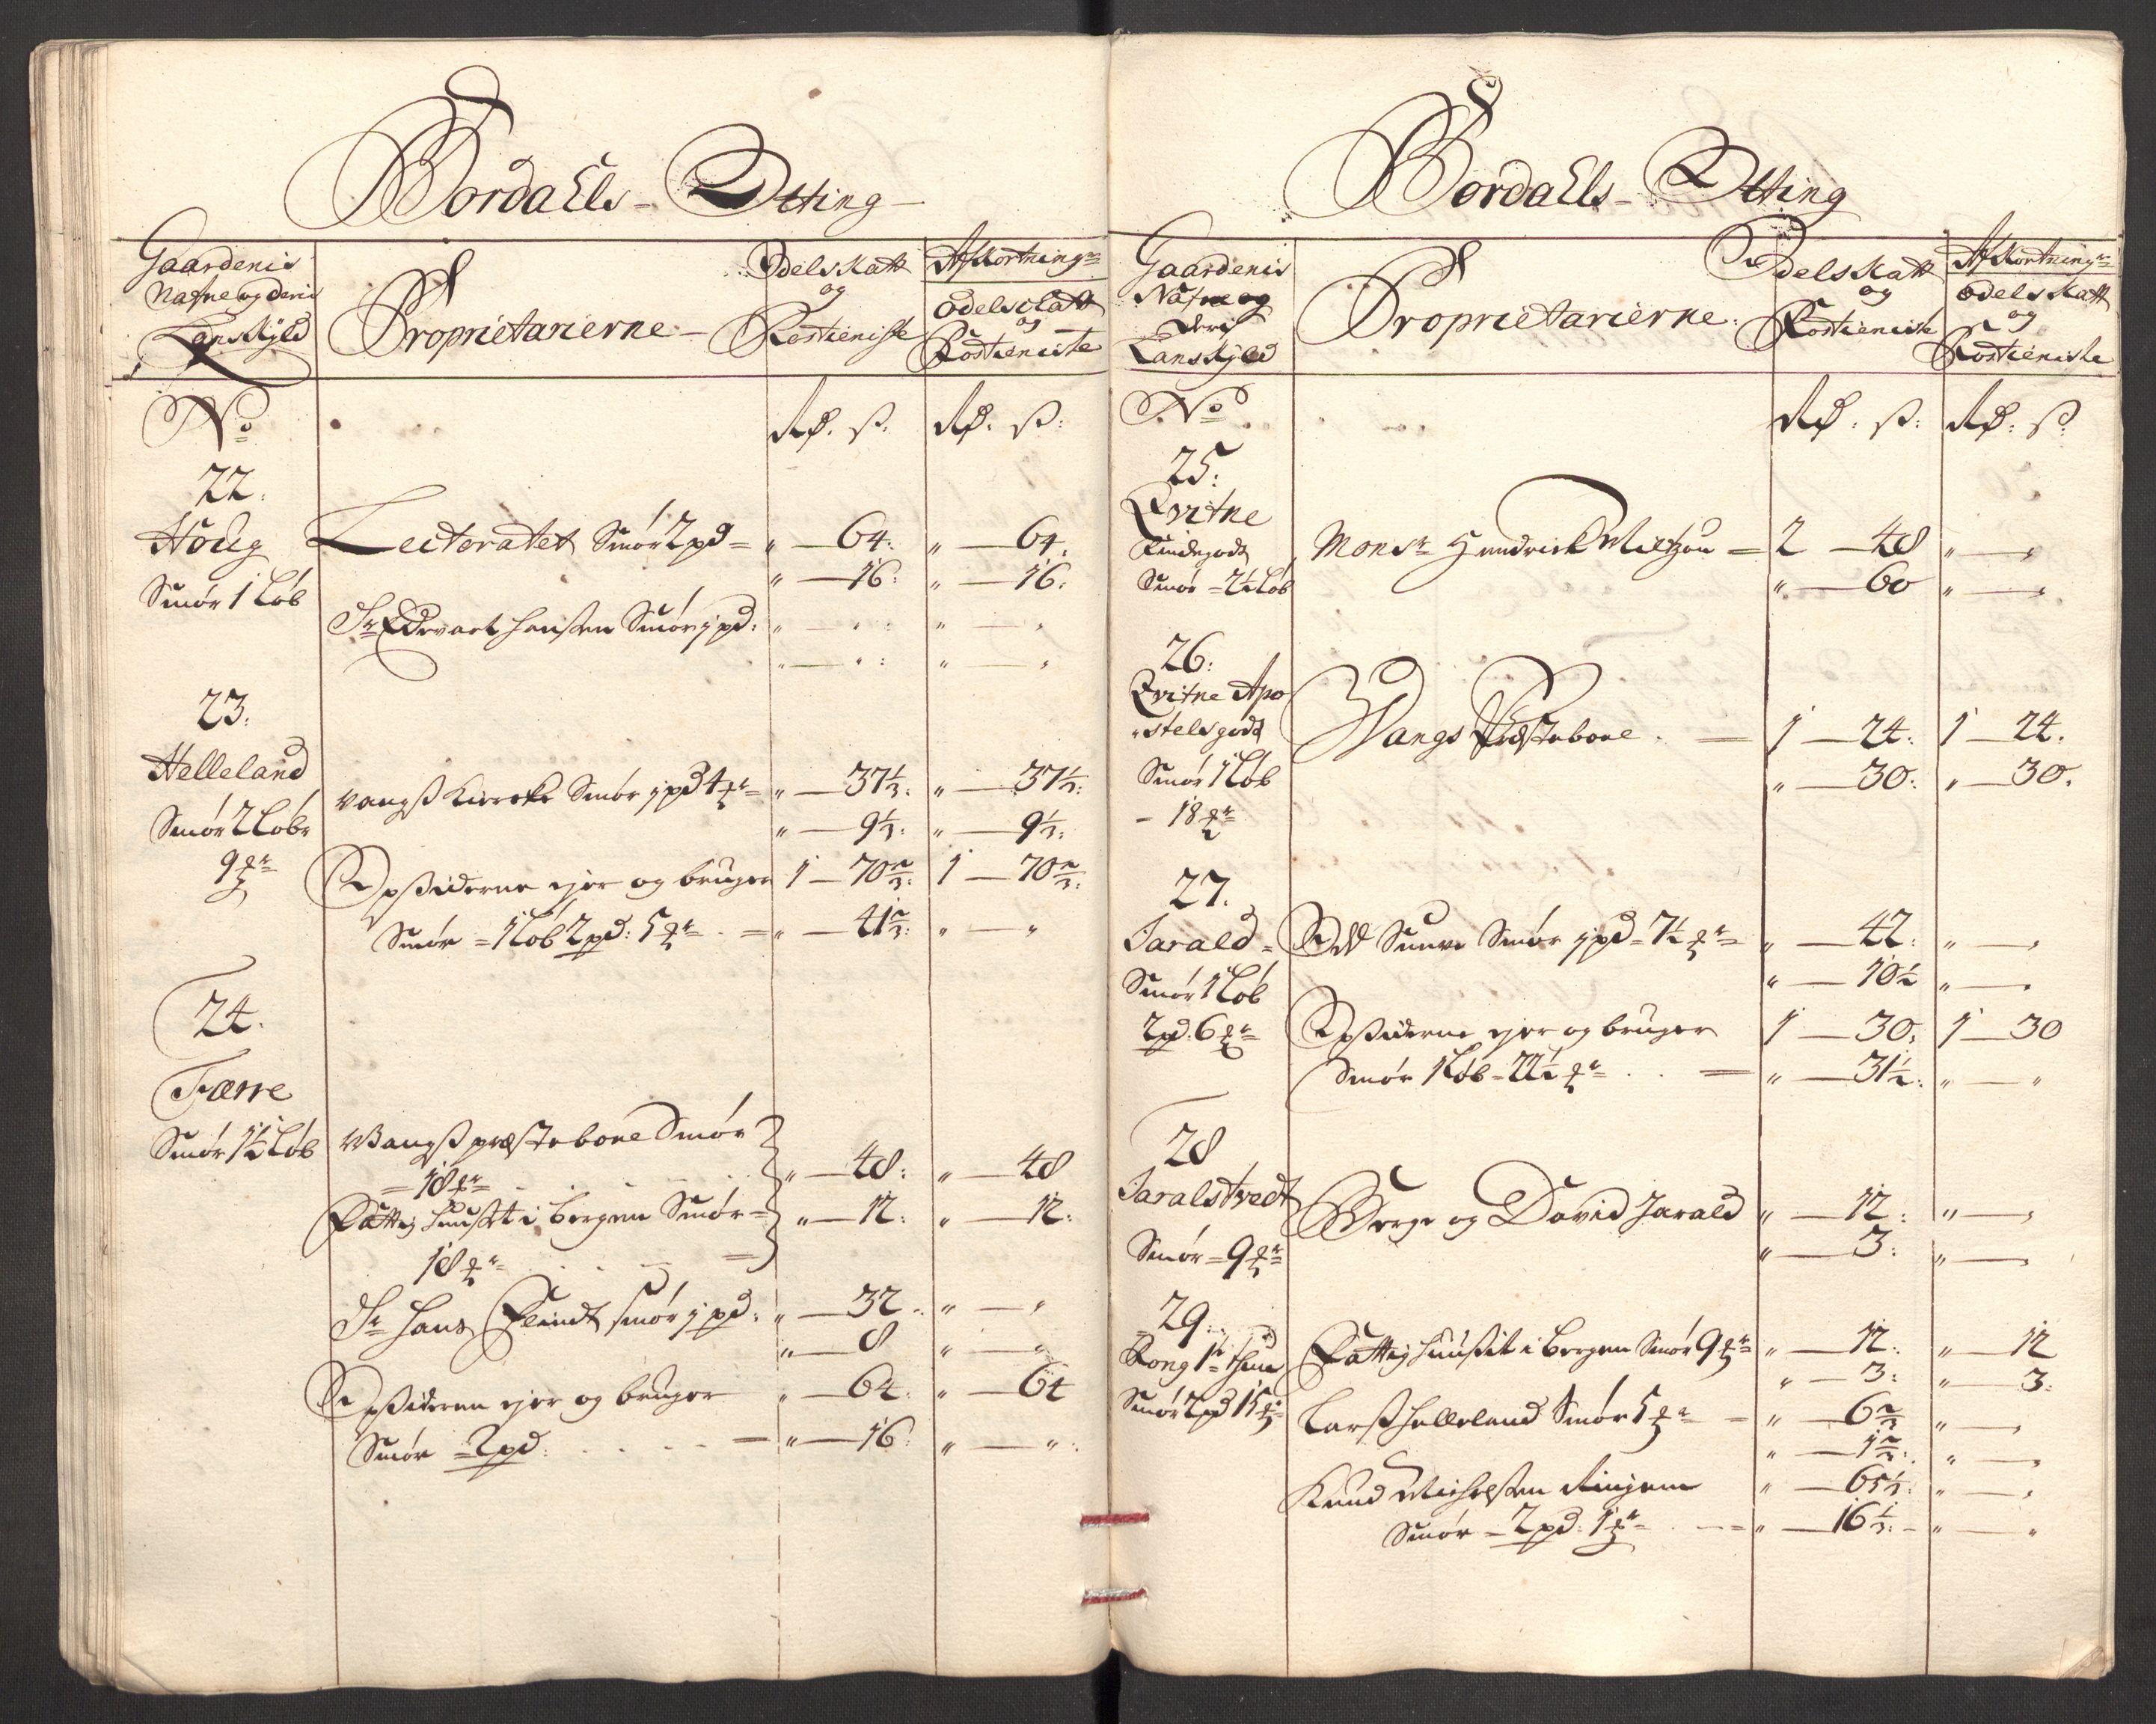 BordaEls - Otting
Gaardenis
Nafne og deris
Lanskyld
Proprietarierne
Odelskatt
og
Rostieniste
Afkortning
odelskatt
og
Rostieniste
No
Rd. ß.
Rd. ß:
22.
Houg
Smør 1 Løb
Lectoratet Smør 2 pd = " — 64: " — 64.
" — 16: " — 16.
Sr Edvart Hansen Smør j pd: " " : " — "
" — " : " — "
23.
Helleland
Smør 2 Løb
9 ℔r
Vangß Kiercke Smør j pd 4 ℔r = " — 37 1/3: " — 37 1/3:
" — 9 1/3: " — 9 1/3:
Opsiderne ejer og bruger 1 — 70 2/3: 1 — 70 2/3:
Smør = 1 Løb 2 pd: 5 ℔r = " — 41 2/3: " — "
24.
Færre
Smør 1 1/2 Løb
Vangß præstebole Smør
= 18 ℔r " — 48: " — 48
Fattig huuset i bergen Smør = " — 12: " — 12:
18 ℔r
Sr Hans Flindt smør j pd: " — 32 " — "
" — 8 " — "
Opsideren ejer og bruger " — 64 " — 64
Smør = 2 pd: = " — 16: " — ":
BordaEls - Otting
Gaardenis
Nafne og
deris
Lanskyld
Proprietarierne.
Odelskatt
og
Rostieniste
Afkortning
odelskatt
og
Rostieniste
No
Rd. ß:
Rd: ß:
25.
Qvitne
Smør = 2 1/2 Løb
Monsr Hendrick Miltzou = 2 — 48 " — "
" — 60 " — "
26:
Qvitne Apo
stelsgods
Smør 1 Løb
- 18 ℔r
Wangs Præstebole. — 1 — 24: 1 — 24.
" — 30: " — 30.
27.
Jarald =
Smør 1 Løb
2 pd. 6 ℔r
Odd Sunve Smør j pd = 7 1/2 ℔r = " — 42: " — "
" — 10 1/2 " — "
Opsiderne ejer og bruger 1 — 30: 1 — 30
Smør 1 Løb - 22 1/2 ℔r = " — 31 1/2: " — "
28
Jaralstvedt
Smør = 9 ℔r
Børge og David Jarald " — 12: " — "
" — 3: " — "
29.
Rong 1te thun
Smør 2 pd 15 ℔r
Fattig huuset i Bergen Smør 9 ℔r " — 12. " — 12
" — 3: " — 3:
Larß Helleland Smør 5 ℔r = " — 6 2/3 " — "
" — 1 2/3: " — "
Knud Michelsen Ringem " — 65 1/3: " — "
Smør = 2 pd: 1 ℔r = " — 16 1/3: " — "